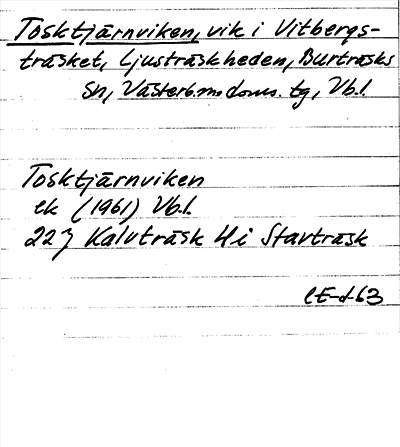 Tosktjärnviken, vik i Vitbergs-
träsket, Ljusträskheden, Burträsks
sn, Västerb. m. doms. tg, Vb.l.
Tosktjärnviken
ek (1961) Vb.l.
22J Kalvträsk 4i Stavträsk